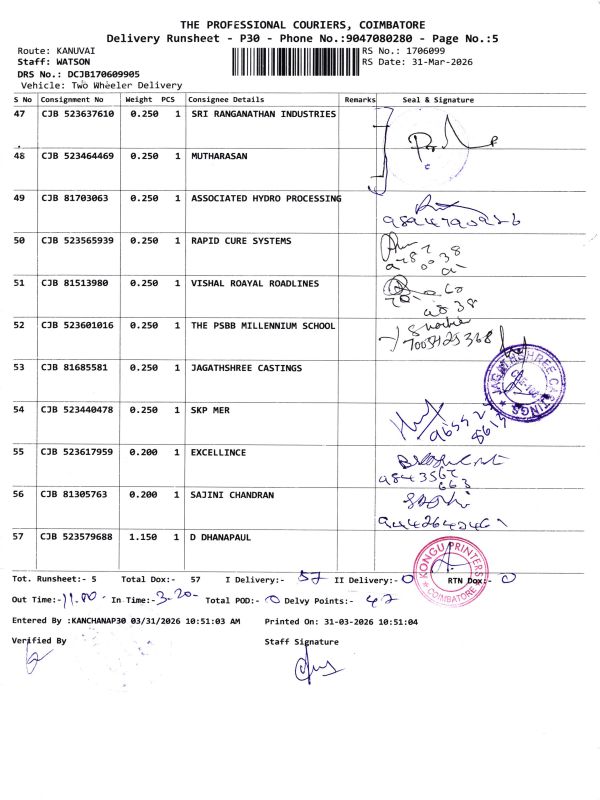 THE PROFESSIONAL COURIERS, COIMBATORE
Delivery Runsheet - P30 - Phone No.:9047080280 - Page No.:5
Route: KANUVAI RS No.: 1706099
Staff: WATSON RS Date: 31-Mar-2026
DRS No.: DCJB170609905
Vehicle: Two Wheeler Delivery
S No Consignment No Weight PCS Consignee Details Remarks Seal & Signature
47 CJB 523637610 0.250 1 SRI RANGANATHAN INDUSTRIES
48 CJB 523464469 0.250 1 MUTHARASAN
49 CJB 81703063 0.250 1 ASSOCIATED HYDRO PROCESSING
50 CJB 523565939 0.250 1 RAPID CURE SYSTEMS
51 CJB 81513980 0.250 1 VISHAL ROAYAL ROADLINES
52 CJB 523601016 0.250 1 THE PSBB MILLENNIUM SCHOOL
53 CJB 81685581 0.250 1 JAGATHSHREE CASTINGS
JAGATHSHREE CASTINGS
54 CJB 523440478 0.250 1 SKP MER
55 CJB 523617959 0.200 1 EXCELLINCE
56 CJB 81305763 0.200 1 SAJINI CHANDRAN
57 CJB 523579688 1.150 1 D DHANAPAUL
KONGU PRINTERS
COIMBATORE
Tot. Runsheet:- 5 Total Dox:- 57 I Delivery:- 57 II Delivery:- 0 RTN Dox:- 0
Out Time:- 11.00 In Time:- 3.20 Total POD:- 0 Delvy Points:- 47
Entered By :KANCHANAP30 03/31/2026 10:51:03 AM Printed On: 31-03-2026 10:51:04
Verified By Staff Signature